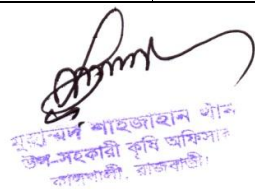 মুহাম্মদ শাহজাহান খাঁন
উপ-সহকারী কৃষি অফিসার
কালুখালী, রাজবাড়ী।